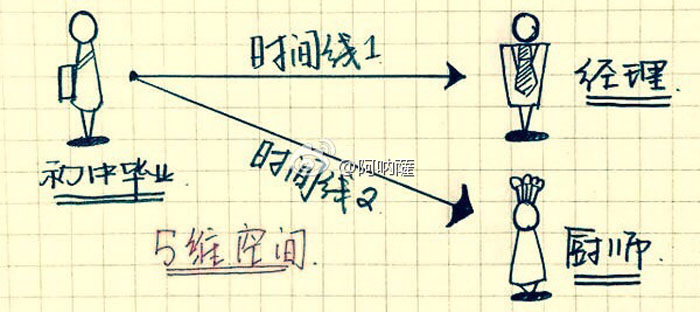 时间线1
经理.
初中毕业
时间线2
@阿呐薩
厨师.
5维空间.